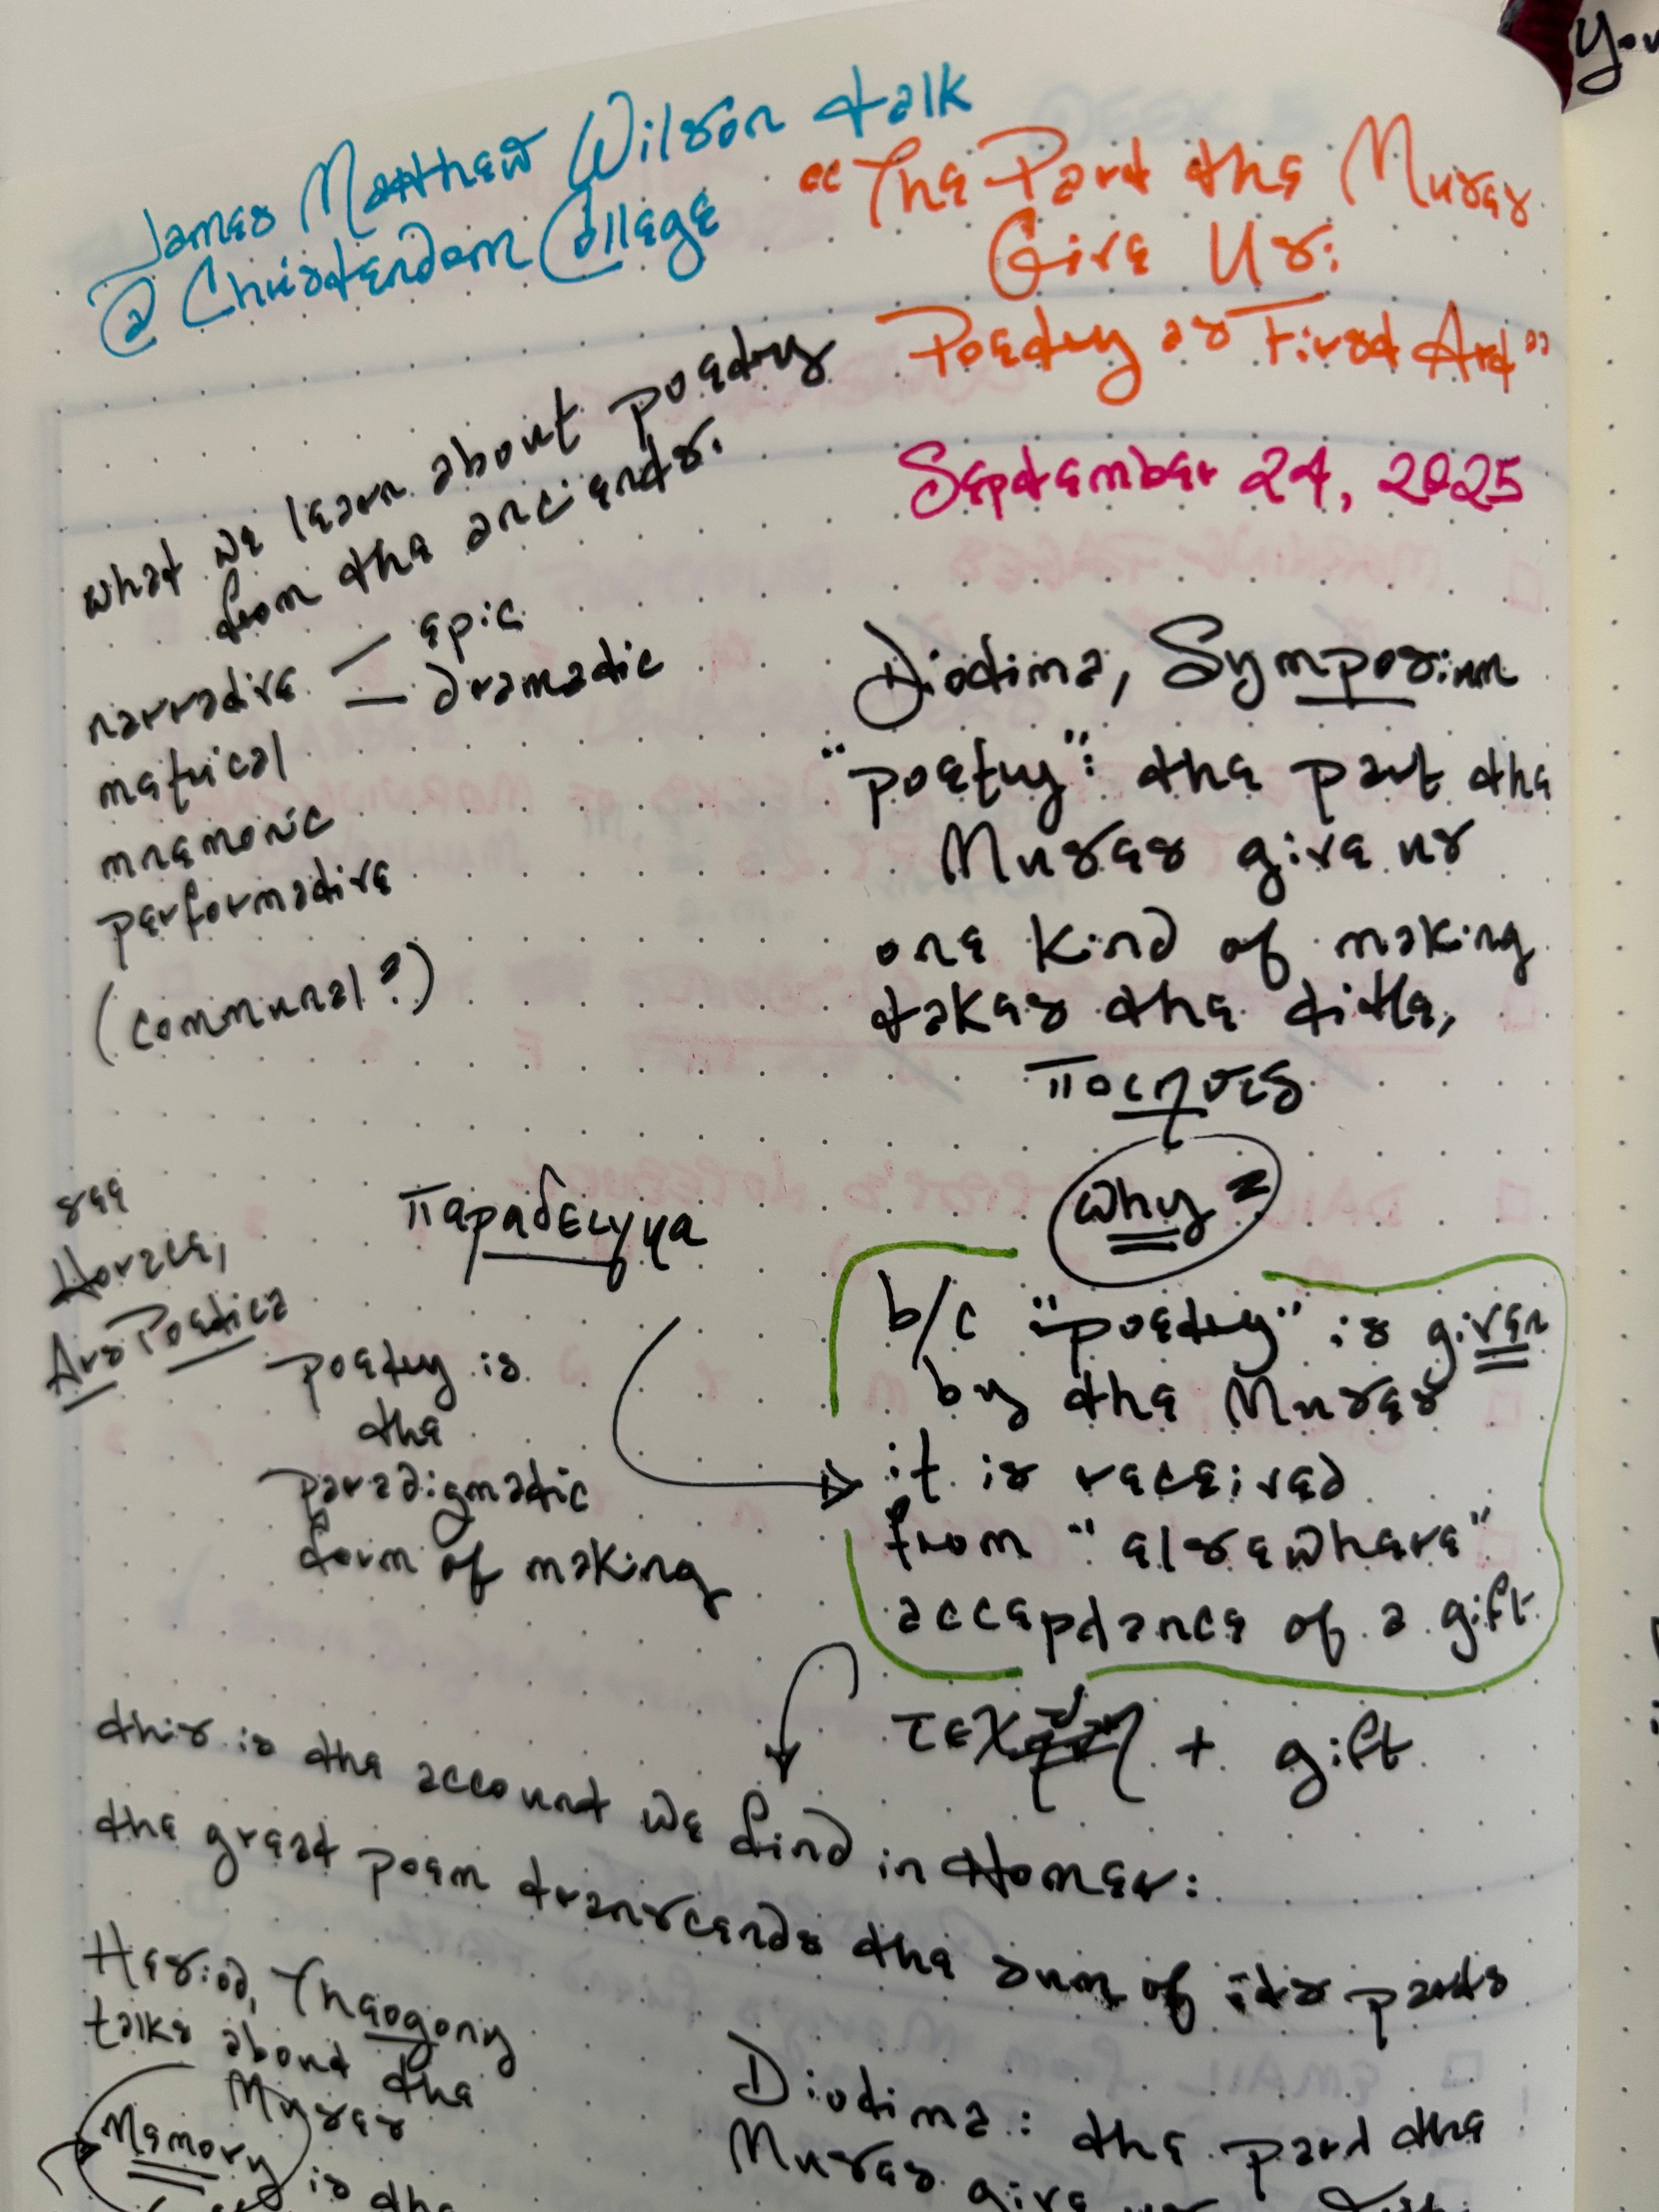 James Matthew Wilson talk
@ Christendom College
"The Part the Muses
Give Us:
Poetry as First Art"
September 24, 2025
what we learn about poetry
from the ancients.
narrative — epic
— dramatic
metrical
mnemonic
performative
(communal?)
Diotima, Symposium
"poetry": the part the
Muses give us
one kind of making
takes the title,
ποιησις
why?
παραδειγμα
see
Horace,
Ars Poetica
poetry is
the
paradigmatic
form of making
b/c "poetry" is given
by the Muses
it is received
from "elsewhere"
acceptance of a gift
+ gift
this is the account we find in Homer:
the great poem transcends the sum of its parts
Hesiod, Theogony
talks about the
Muses
Memory
is the
Diotima: the part the
Muses give